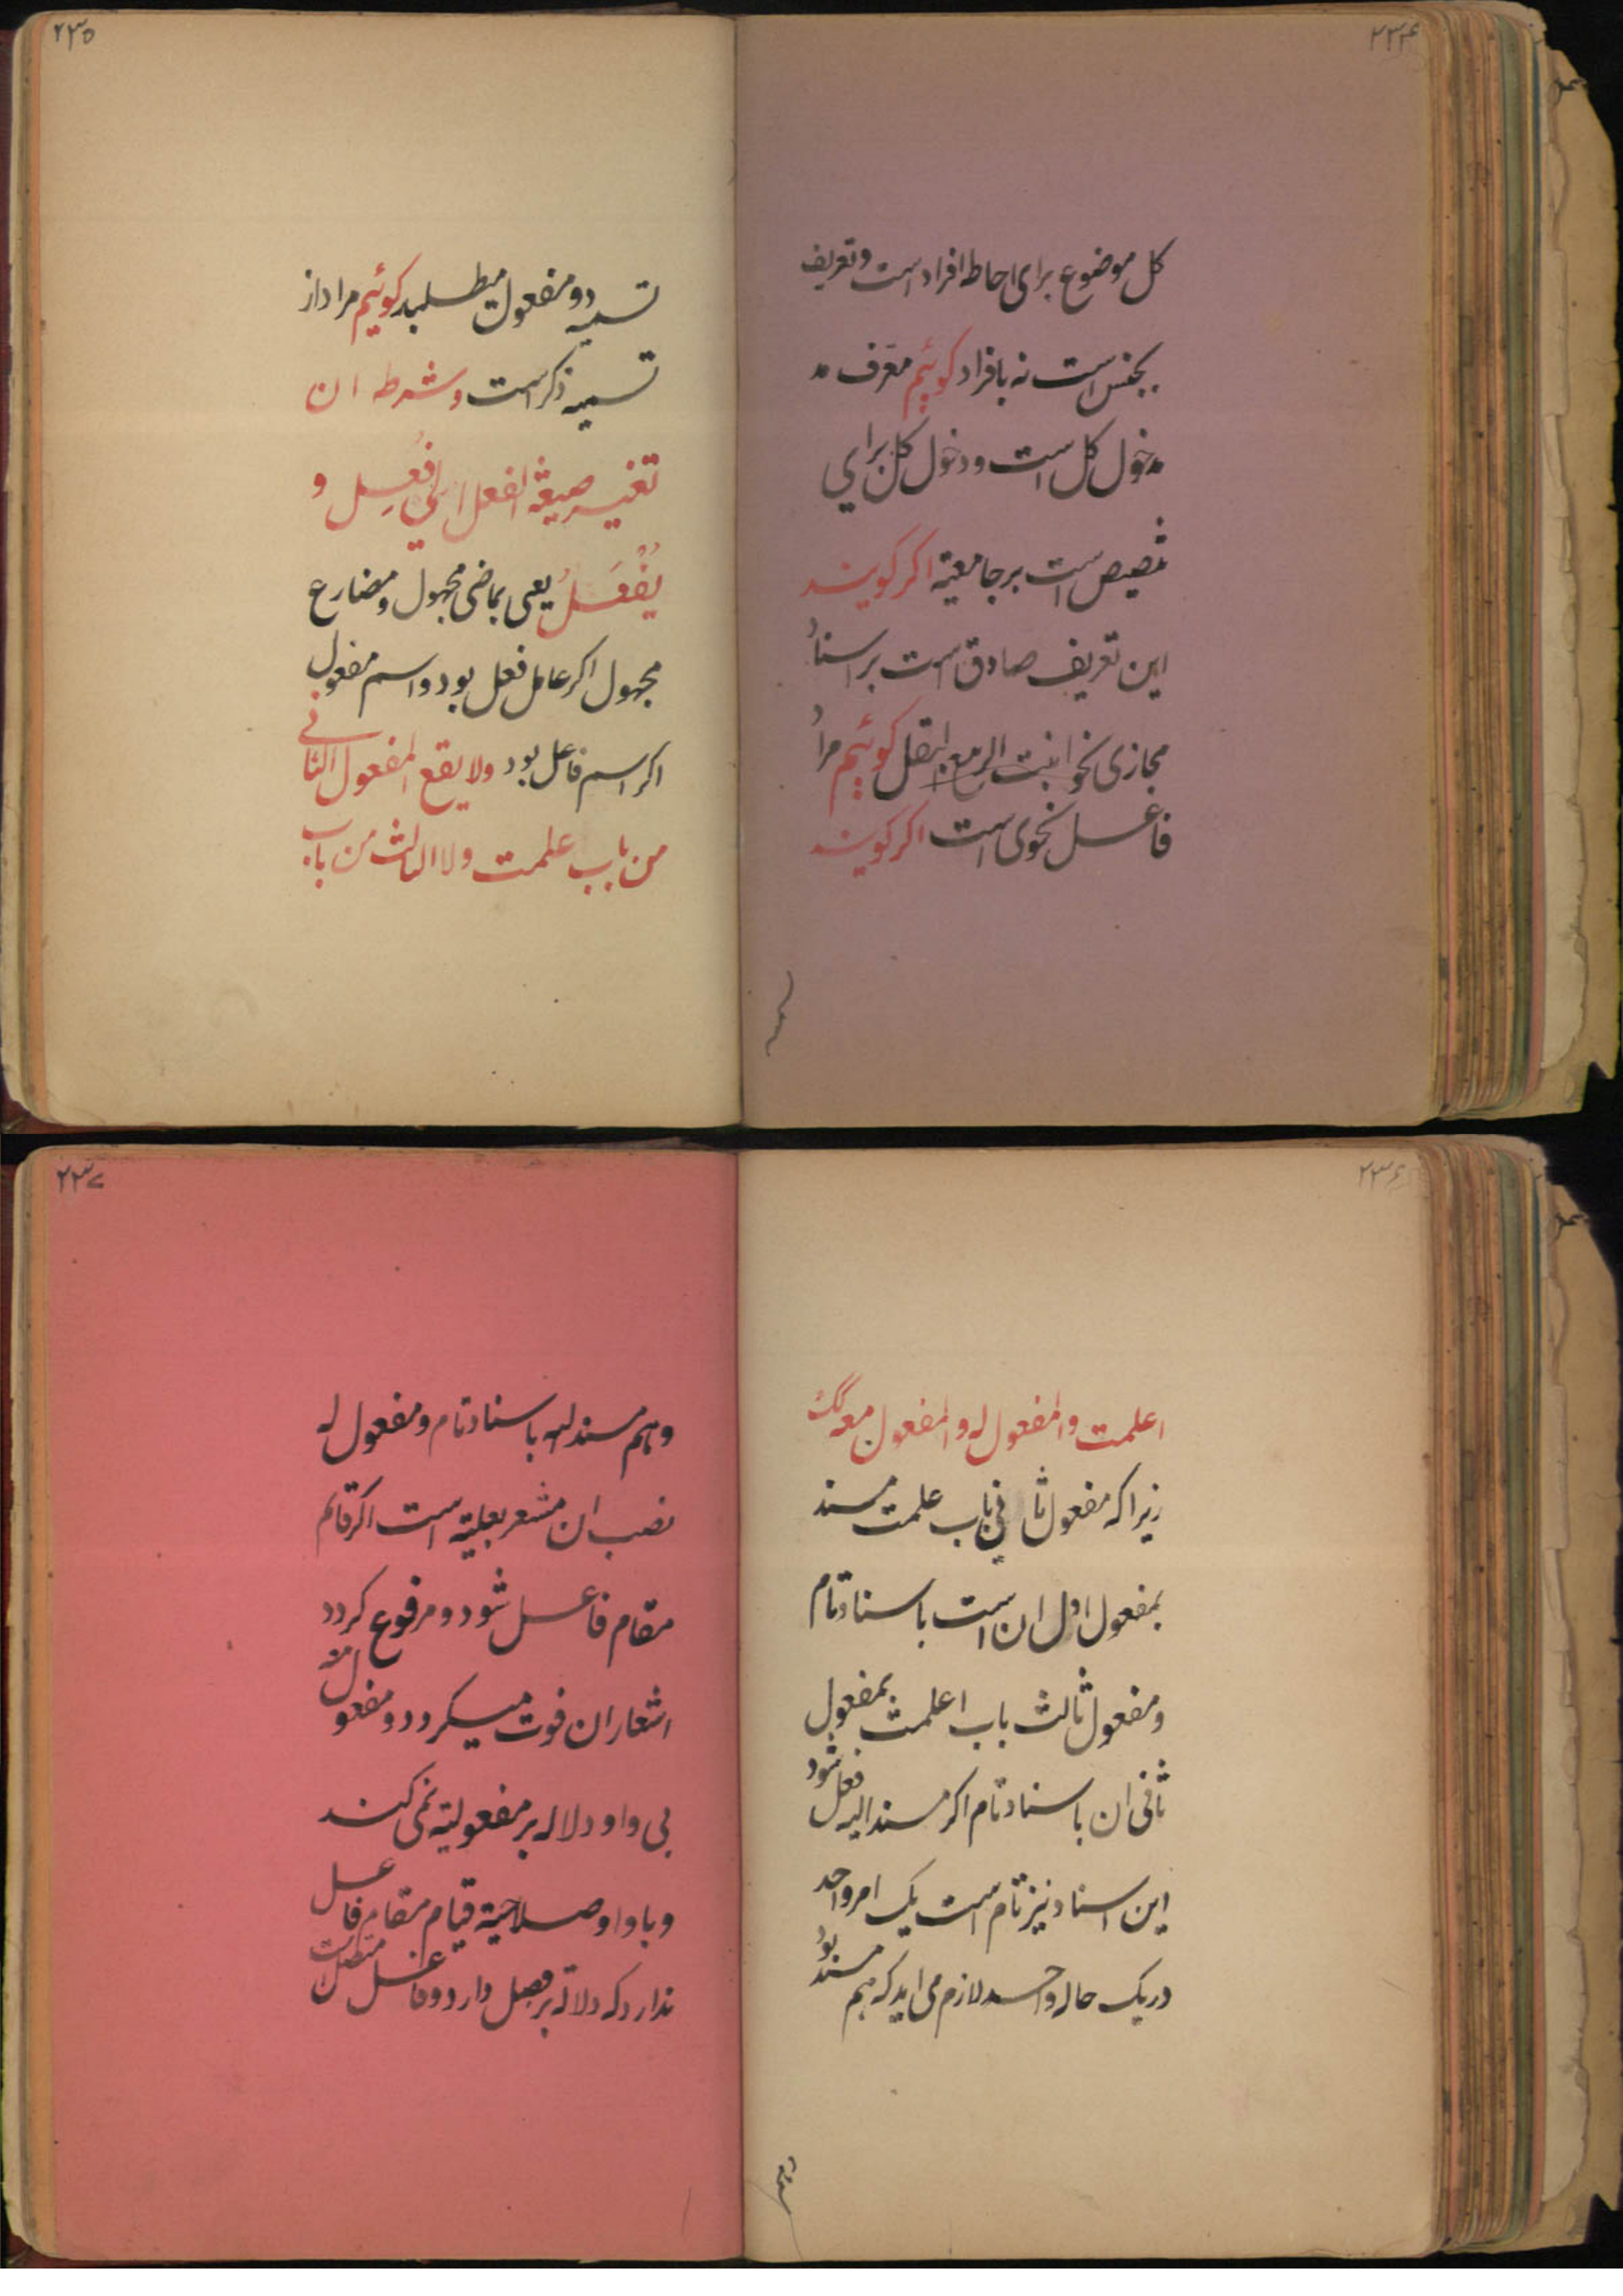 ۲۳۴
کل موضوع برای احاطه افراد است و تعریف
بجنس است نه بافراد کوئیم معرف مد
مدخول کل است و دخول کل برای
تنصیص است بر جامعیته اکر کویند
این تعریف صادق است بر اسناد
مجازی نحو انبت الربیع البقل کوئیم مراد
فاعل نحوی است اکر کویند
۲۳۵
تسمیه دو مفعول میطلبد کوئیم مراد از
تسمیه ذکر است وشرطه ان
تغییر صیغة الفعل الی فُعِل و
یُفْعَلُ یعنی بماضی مجهول و مضارع
مجهول اکر عامل فعل بود و اسم مفعول
اکر اسم فاعل بود ولا یقع المفعول الثانی
من باب علمت ولا الثالث من باب
۲۳۶
اعلمت والمفعول له والمفعول معه کک
زیرا که مفعول ثانی باب علمت مسند
بمفعول اول ان است باسناد تام
و مفعول ثالث باب اعلمت بمفعول
ثانی ان باسناد تام اکر مسند الیه فعل شود
این اسناد نیز تام است یک امر واحد
در یک حاله واحد لازم می اید که هم مسند بود
وهم
۲۳۷
وهم مسند الیه باسناد تام و مفعول له
نصب ان مشعر بعلیته است اکر قائم
مقام فاعل شود و مرفوع کردد
اشعار ان فوت میکردد و مفعول معه
بی واو دلاله بر مفعولیته نمی کند
و با واو صلاحیته قیام مقام فاعل
ندارد که دلالة بر فصل دارد و فاعل متصل است